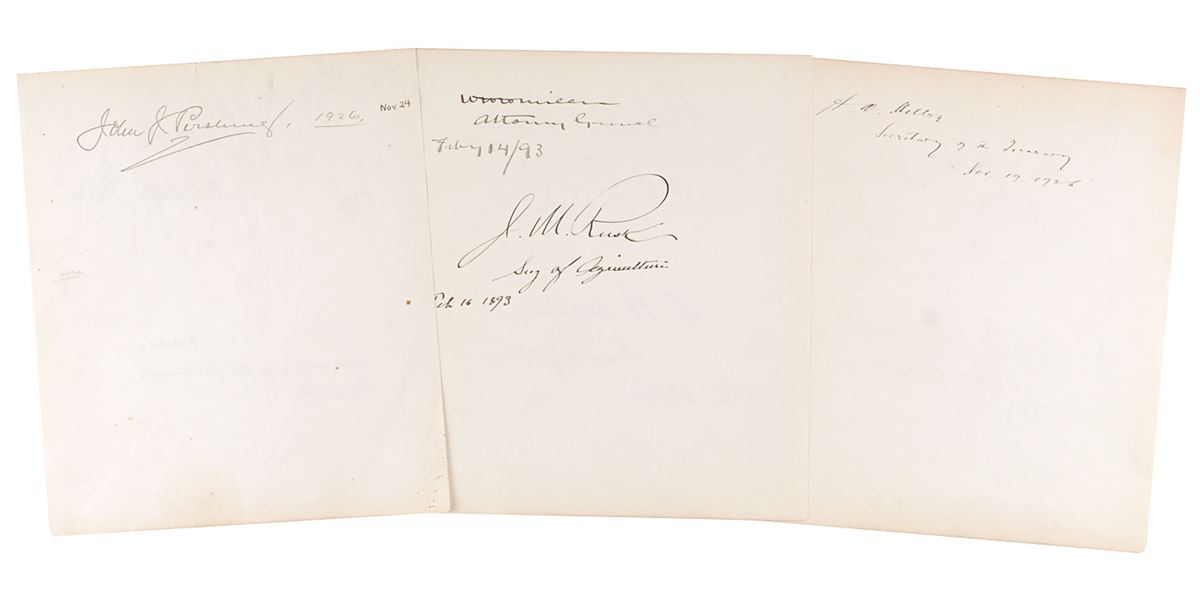 John J. Pershing, 1926, Nov. 24
Attorney General
Feby 14/93
J. M. Rusk
Secy of Agriculture
Feb 16 1893
A. W. Mellon
Secretary of the Treasury
Nov. 19. 1926